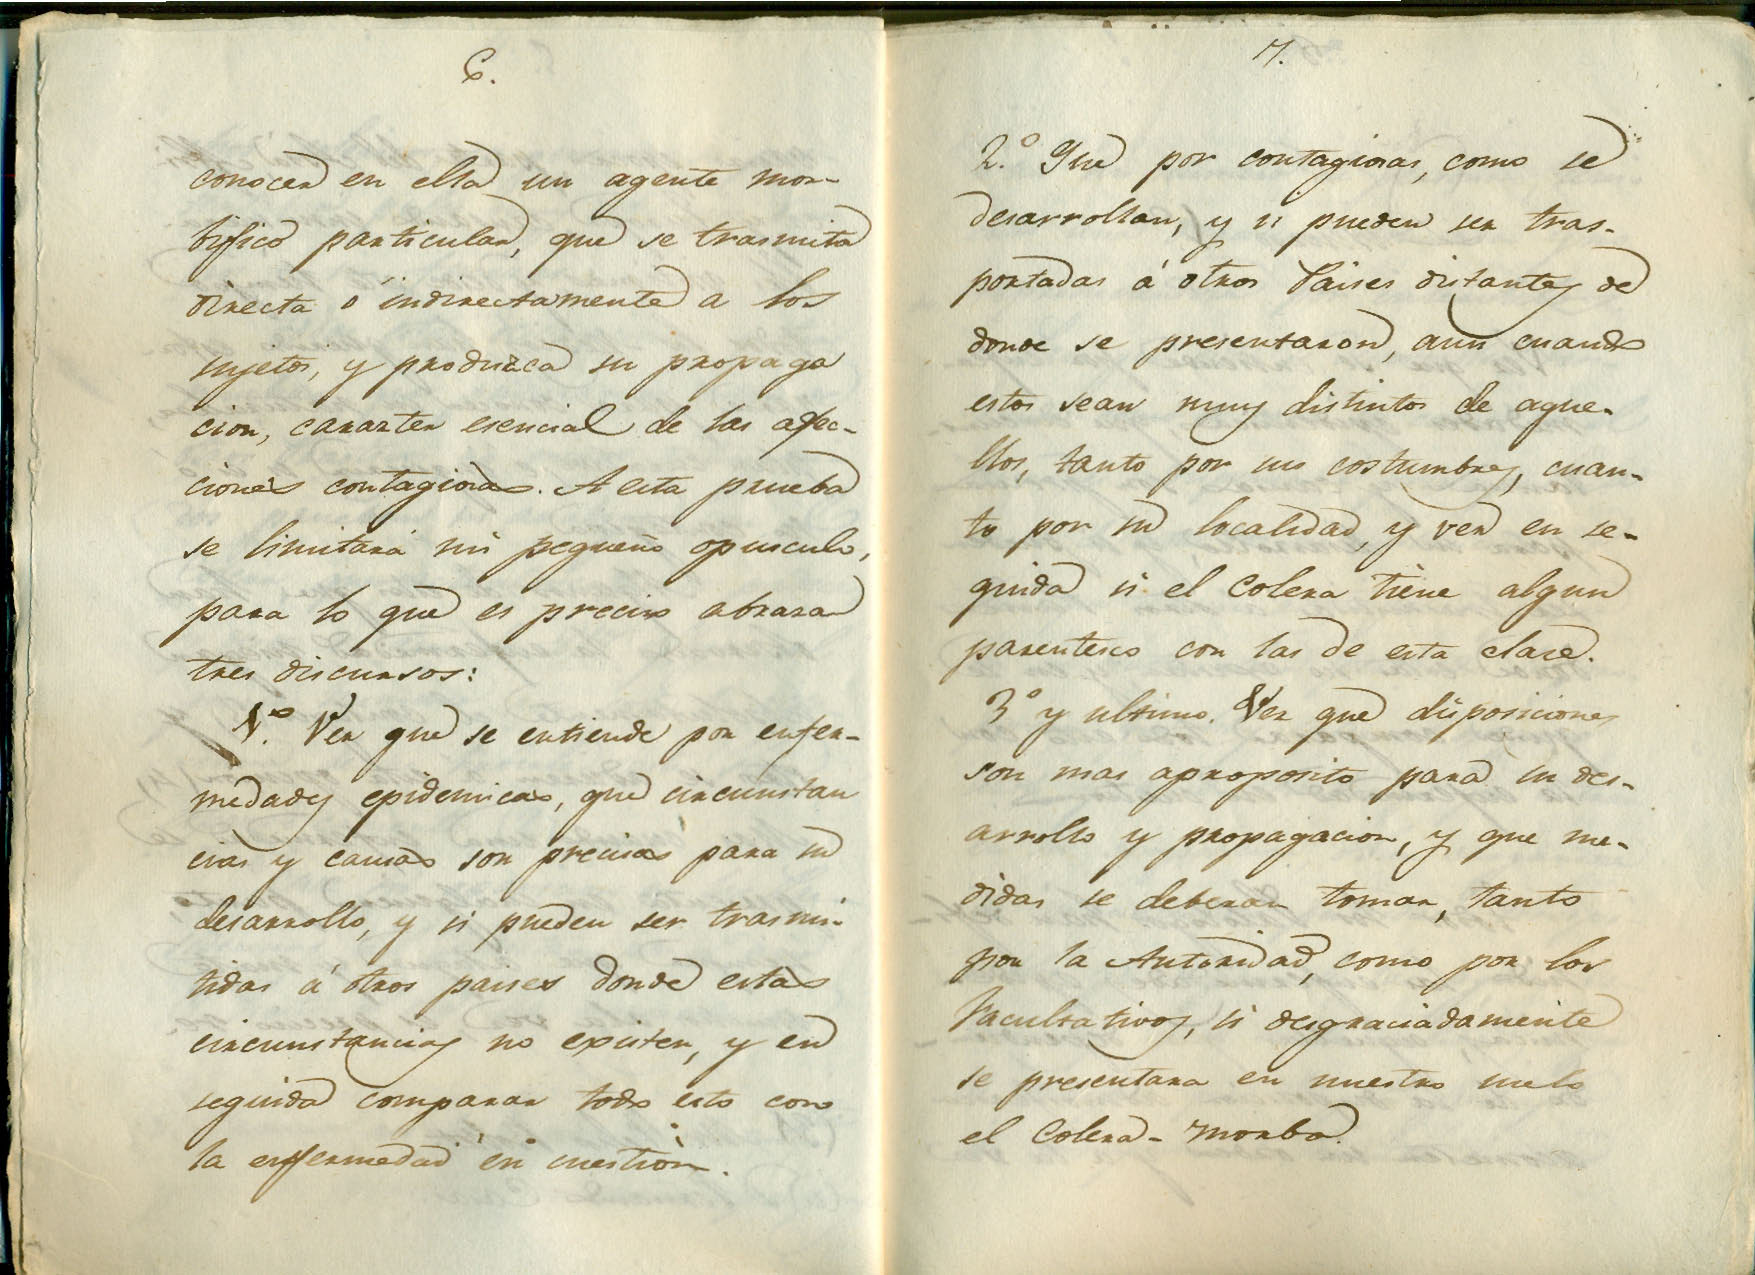 6.
conocer en ella un agente mor-
bifico particular, que se trasmita
directa ó indirectamente a los
sujetos, y produzca su propaga
cion, caracter esencial de las afec-
ciones contagiosas. A esta prueba
se limitará mi pequeño opusculo,
para lo que es preciso abrazar
tres discursos:
1.º Ver que se entiende por enfer-
medades epidemicas, que circunstan
cias y causas son precisas para su
desarrollo, y si pueden ser trasmi-
tidas á otros paises donde estas
circunstancias no existen, y en
seguida comparar todo esto con
la enfermedad en cuestion.
7.
2.º Que por contagiosas, como se
desarrollan, y si pueden ser tras-
portadas á otros Paises distantes de
donde se presentaron, aun cuando
estos sean muy distintos de aque-
llos, tanto por sus costumbres, cuan-
to por su localidad, y ver en se-
guida si el Colera tiene algun
parentesco con las de esta clase.
3º y ultimo. Ver que disposiciones
son mas aproposito para su des-
arrollo y propagacion, y que me-
didas se deberan tomar, tanto
por la Autoridad, como por los
Facultativos, si desgraciadamente
se presentara en nuestro suelo
el Colera-morbo.